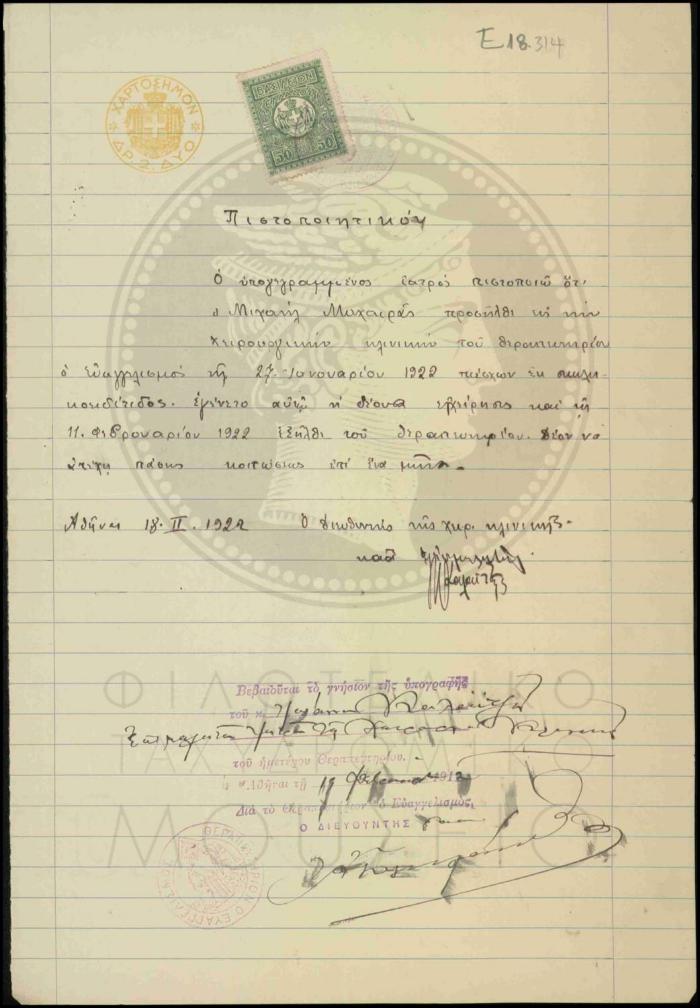 E 18.314
ΧΑΡΤΟΣΗΜΟΝ
ΔΡ. 2. ΔΥΟ
50 50
Πιστοποιητικόν
Ο υπογεγραμμένος ιατρός πιστοποιώ ότι
ο Μιχαήλ Μαχαιράς προσήλθε εις την
χειρουργικήν κλινικήν του θεραπευτηρίου
ο Ευαγγελισμός τη 27 Ιανουαρίου 1922 πάσχων εκ σκωλη-
κοειδίτιδος. Εγένετο αυτώ η δέουσα εγχείρησις και τη
11 Φεβρουαρίου 1922 εξήλθε του θεραπευτηρίου. Δέον να
απέχη πάσης κοπώσεως επί ένα μήνα.
Αθήναι 18. II. 1922 Ο Διευθυντής της χειρ. κλινικής
Βεβαιοῦται τὸ γνήσιον τῆς ὑπογραφῆς
τοῦ κ.
τοῦ ἡμετέρου Θεραπευτηρίου.
Ἀθῆναι τῇ 19 191
Διὰ τὸ Θεραπευτήριον ὁ Εὐαγγελισμός,
Ο ΔΙΕΥΘΥΝΤΗΣ
ΦΙΛΟΤΕΛΙΚΟ
ΤΑΧΥΔΡΟΜΙΚΟ
ΜΟΥΣΕΙΟ